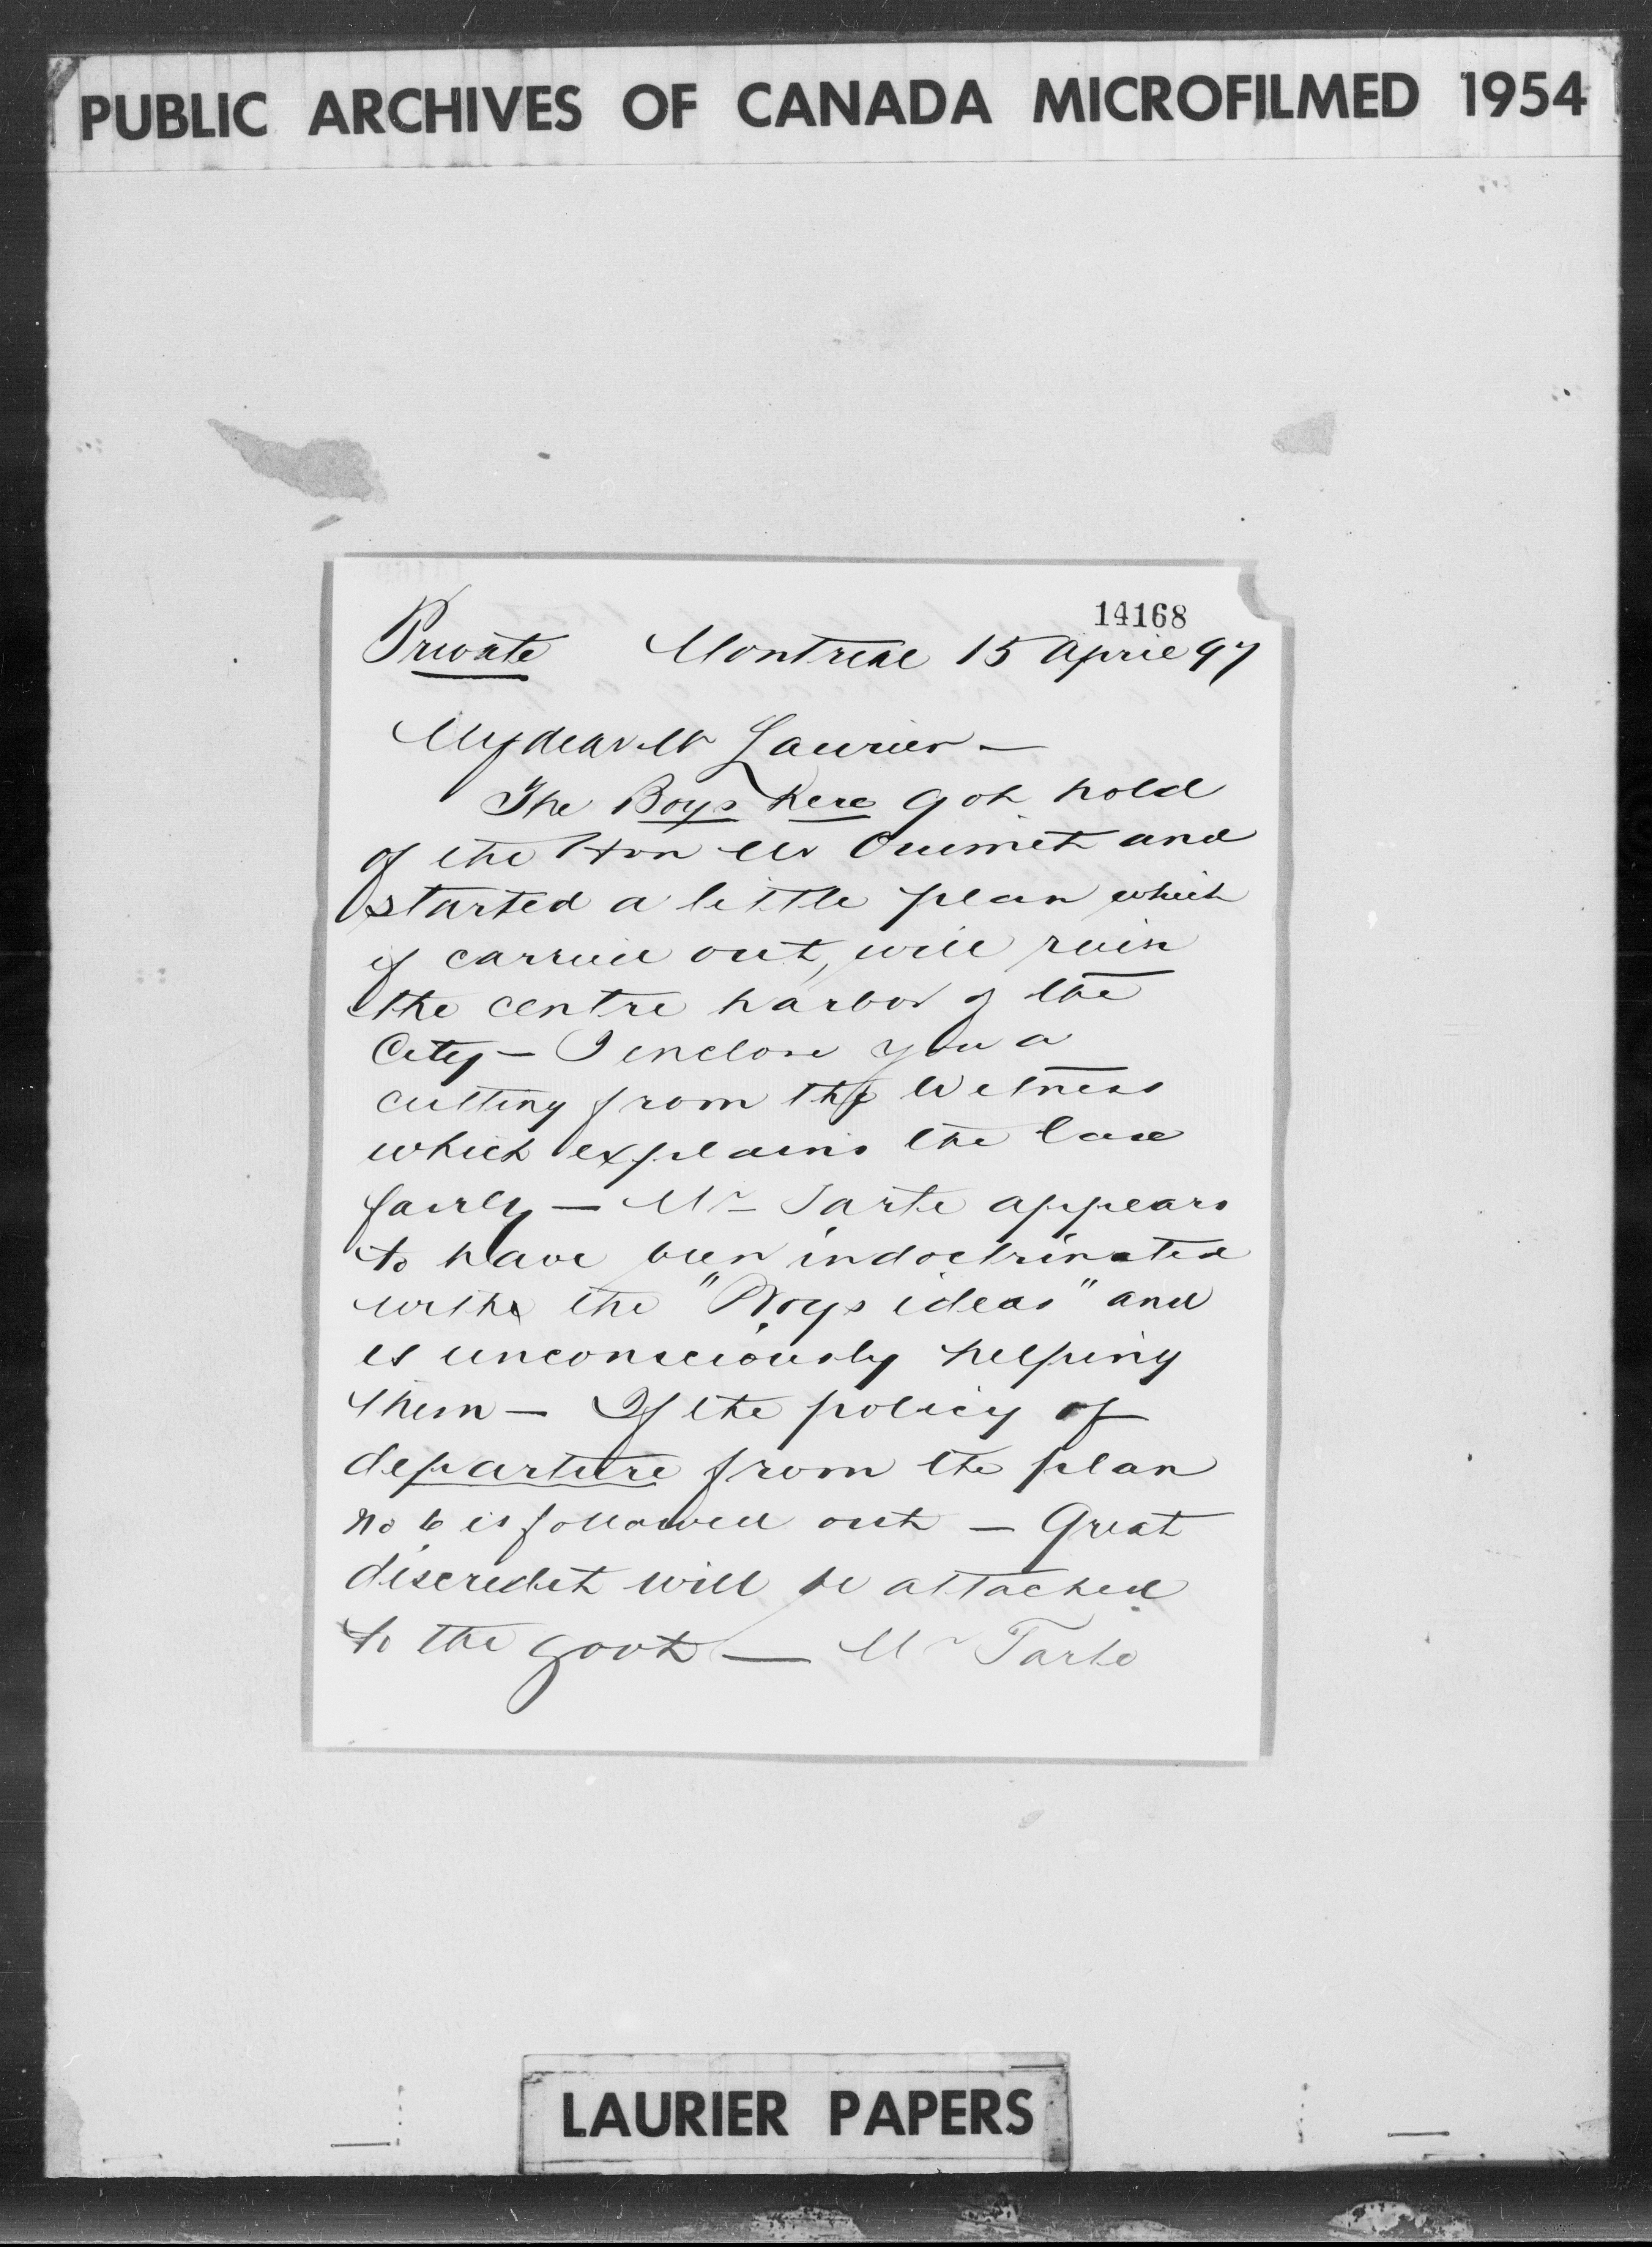 PUBLIC ARCHIVES OF CANADA MICROFILMED 1954
14168
Private Montreal 15 April 97
My dear Mr Laurier —
The Boys here got hold
of the Hon Mr Ouimet and
started a little plan which
if carried out, will ruin
the centre harbor of the
City — I enclose you a
cutting from the Witness
which explains the case
fairly — Mr Tarte appears
to have been indoctrinated
with the "Boys ideas" and
is unconsciously helping
them — If the policy of
departure from the plan
No 6 is followed out — Great
discredit will be attached
to the govt — Mr Tarte
LAURIER PAPERS